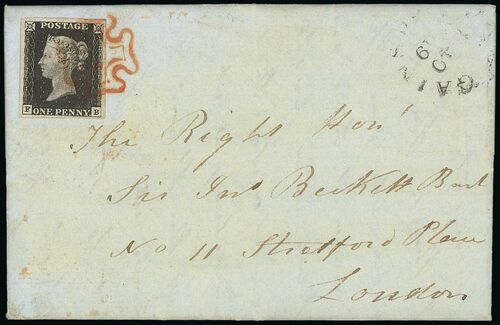 POSTAGE
ONE PENNY
F B
The Right Honᵉ
Sir Jnº Beckett Bart
No 11 Stratford Place
London